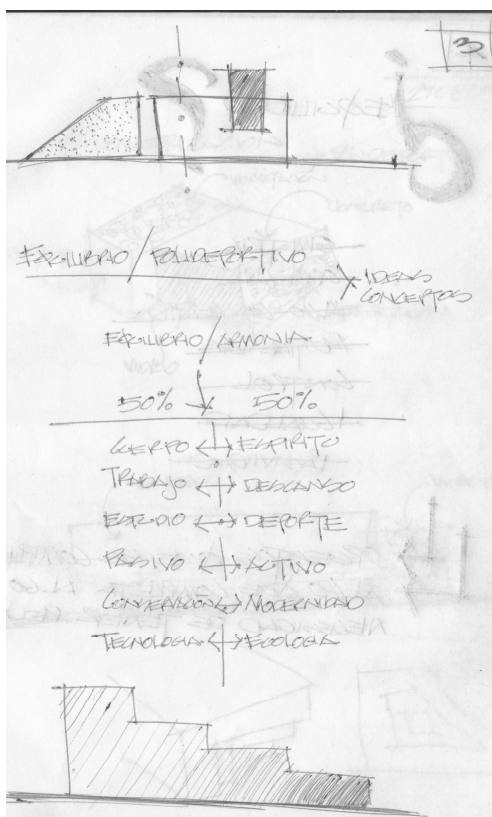 3
EQUILIBRIO / POLIDEPORTIVO
IDEAS
CONCEPTOS
EQUILIBRIO / ARMONIA
50% 50%
CUERPO ↔ ESPIRITU
TRABAJO ↔ DESCANSO
ESTUDIO ↔ DEPORTE
PASIVO ↔ ACTIVO
CONSERVACIÓN ↔ MODERNIDAD
TECNOLOGIA ↔ ECOLOGIA